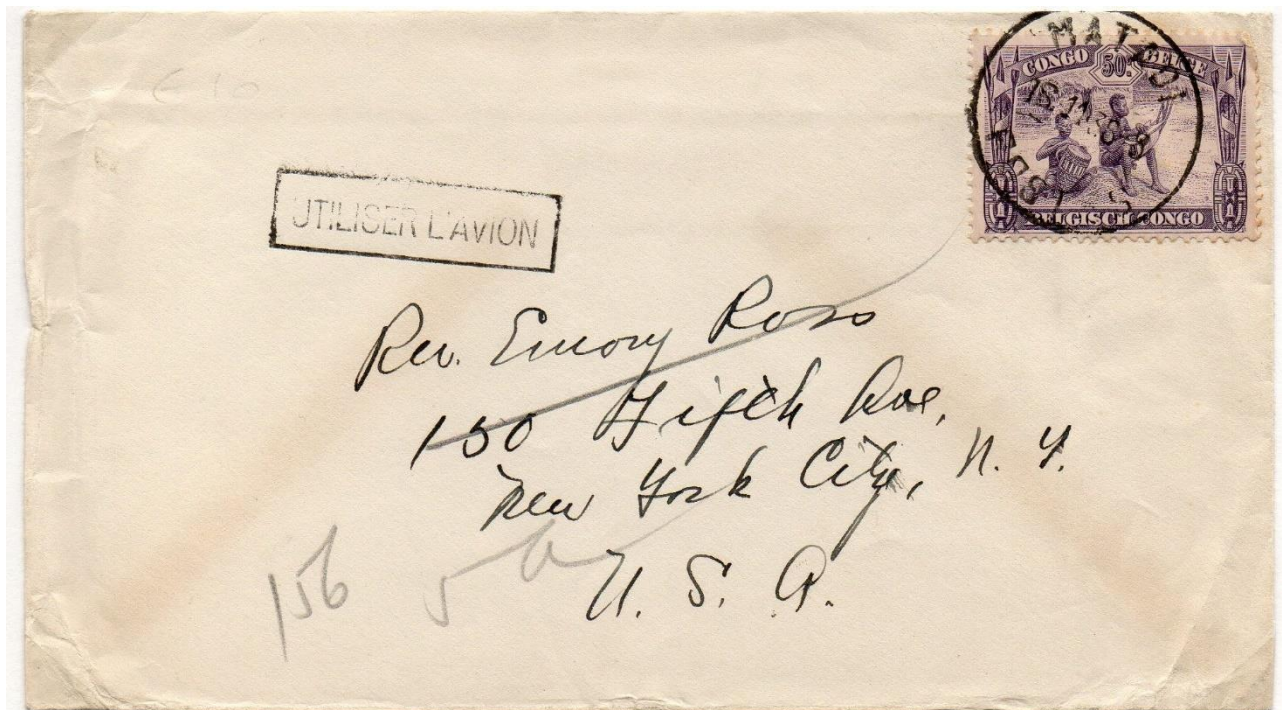 MATADI
CONGO 50c. BELGE
BELGISCH CONGO
UTILISER L'AVION
Rev. Emory Ross
150 Fifth Ave,
New York City, N. Y.
U. S. A.
156 5 a